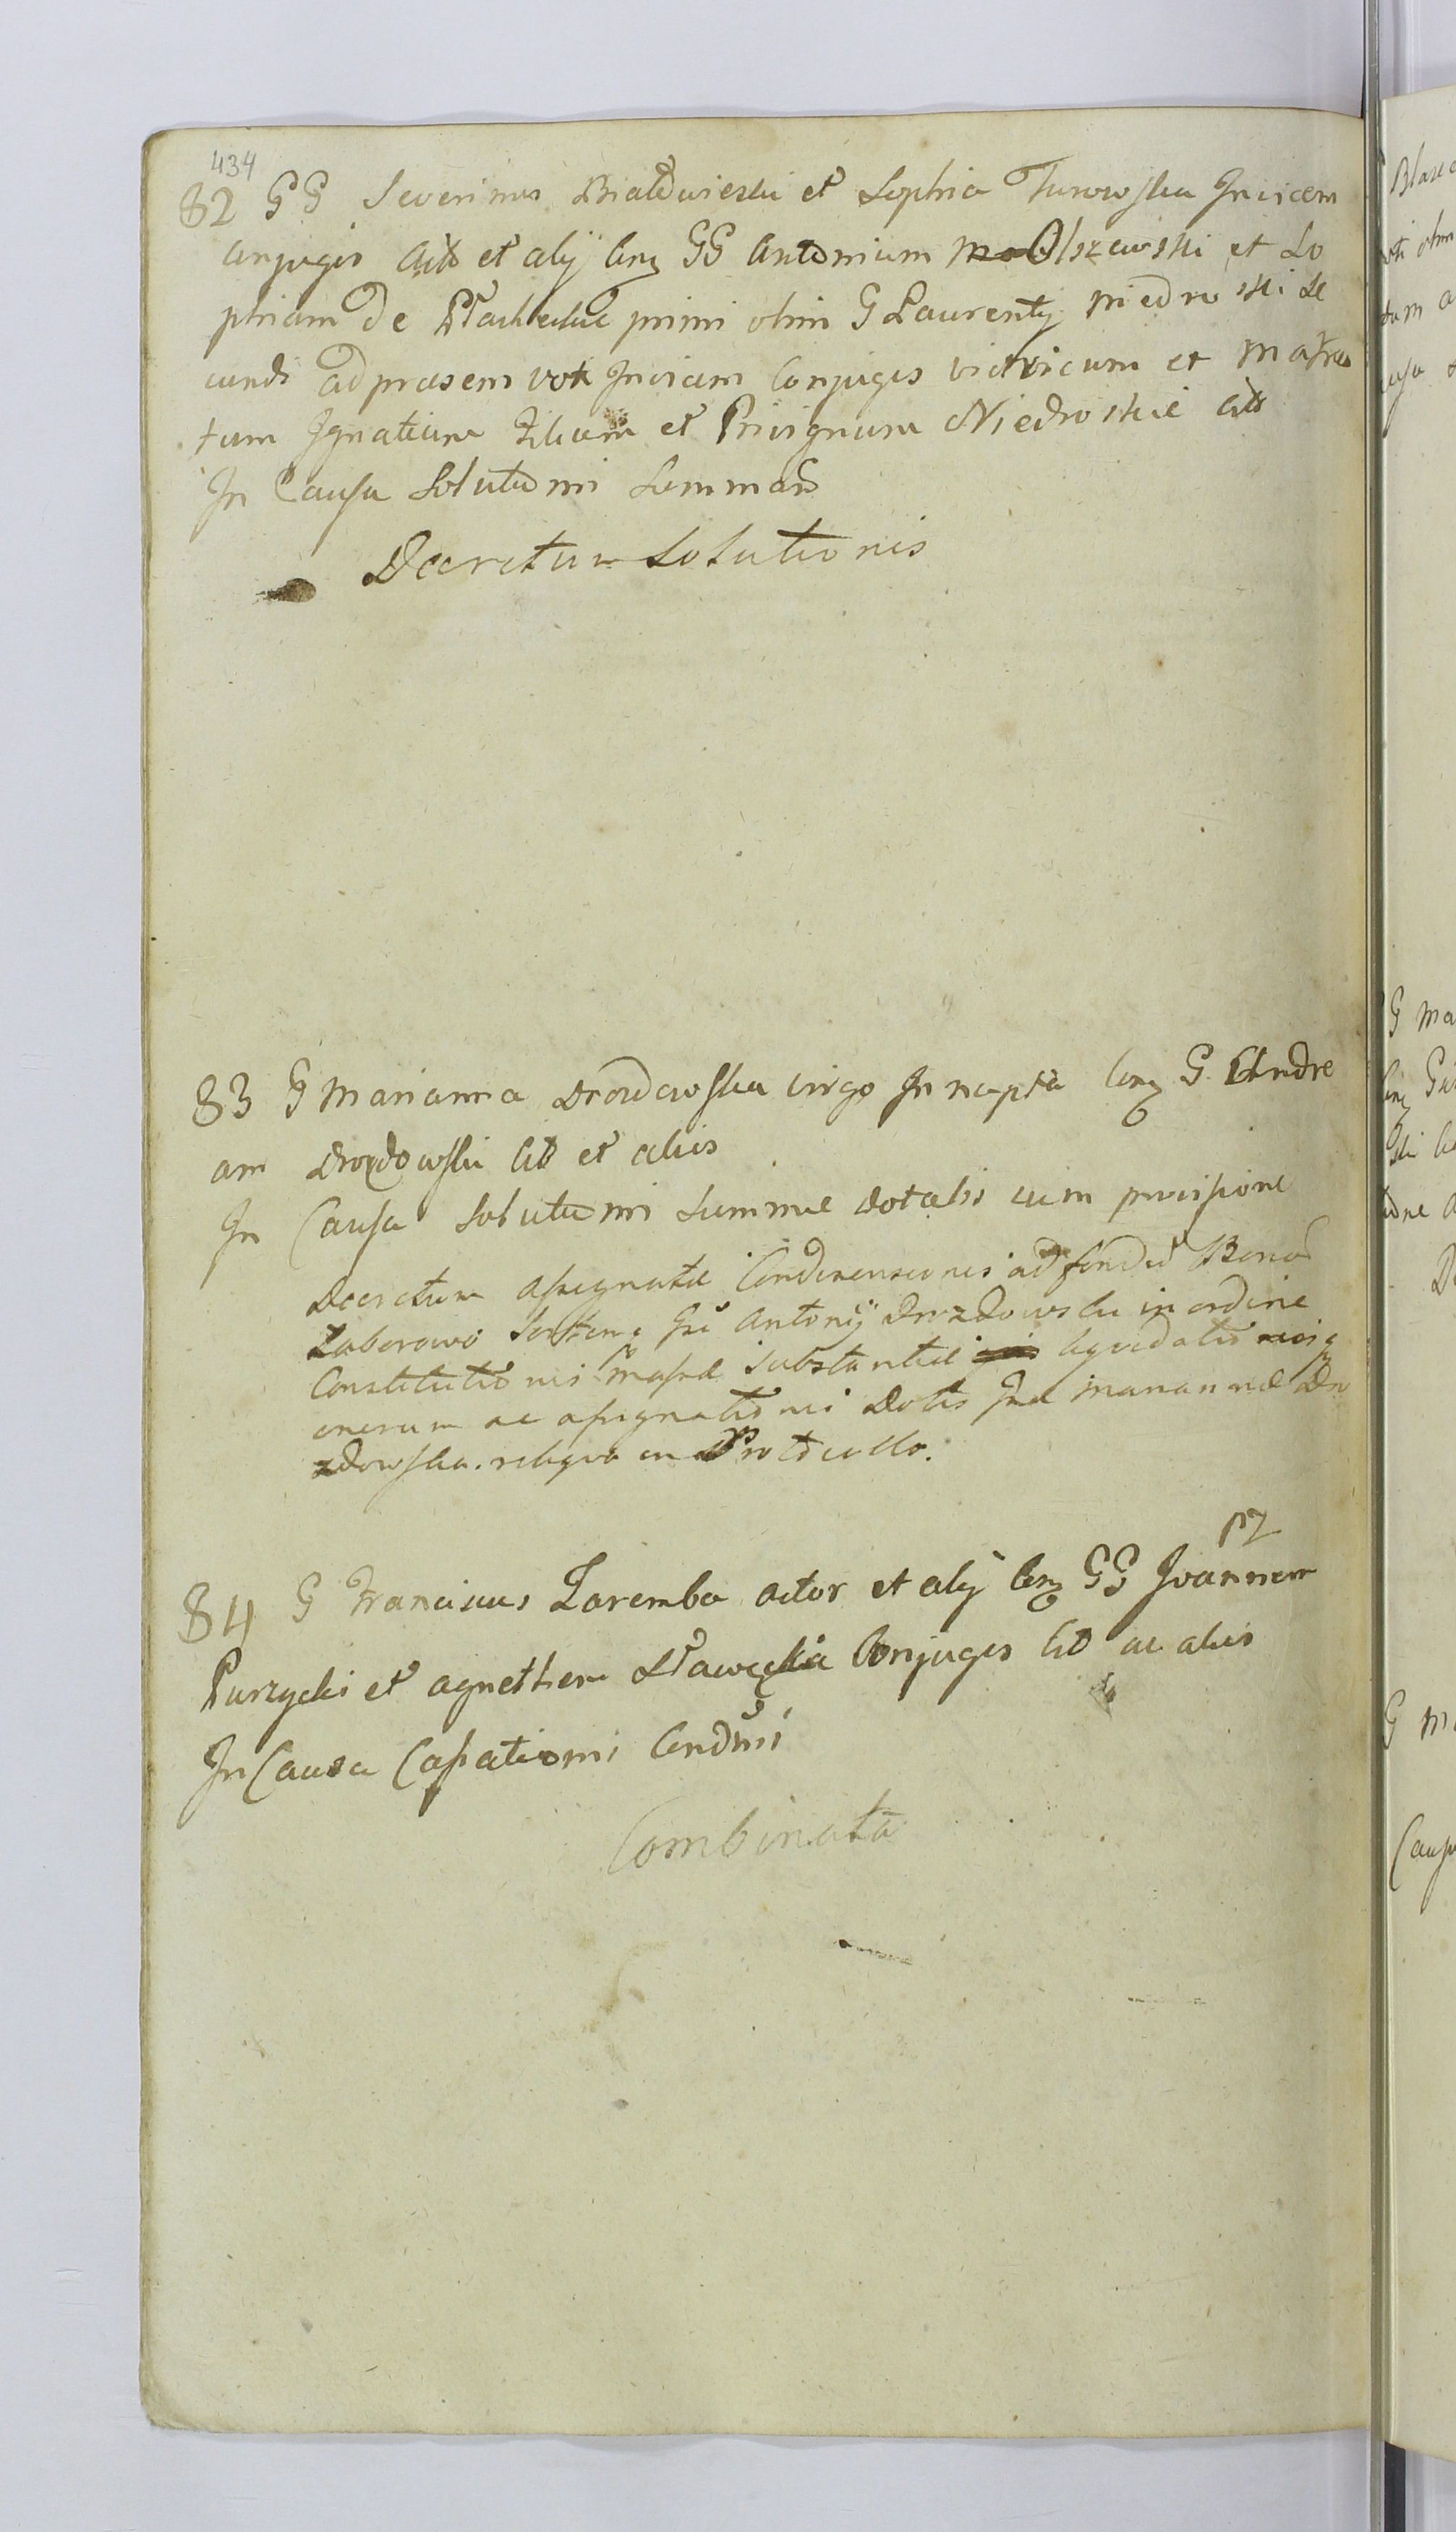 434
82 GG Severinus Białowieski et Sophia Turowska Invicem
Conjuges Act et alij Con GG Antonium Olszewski et So
phiam de primi olim G Laurentij Niedroski Se
cundi ad præsens voti Invicem Conjuges vitricum et Matrem
tum Ignatium Filium et Privignum Niedroskie Citt
In Causa Solutionis Summar
Decretum Solutionis
83 G Marianna Drozdowska virgo Innupta Con G Andre
am Drozdowski Cit et aliis
In Causa Solutionis Summæ dotalis cum provisione
Decretum assignatæ Condescensionis ad fundū Bonor
Zaborowo Antonij Drozdowski in ordine
Constitutionis massæ Substantiæ liquidationis
onerum ac assignationis Dotis Gsæ Mariannæ Dro
zdowska. reliqua in Protocollo.
pz
84 G Franciscus Zaremba Actor et alij Con GG Joannem
Purzycki et Agnethem Conjuges Cit ac aliis
In Causa Cassationis Cond̄nis
Combinata